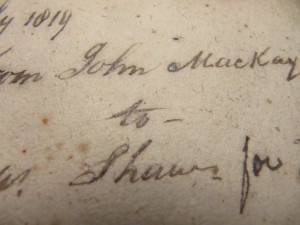 ly 1819
from John MacKay
to -
as. Shaws for